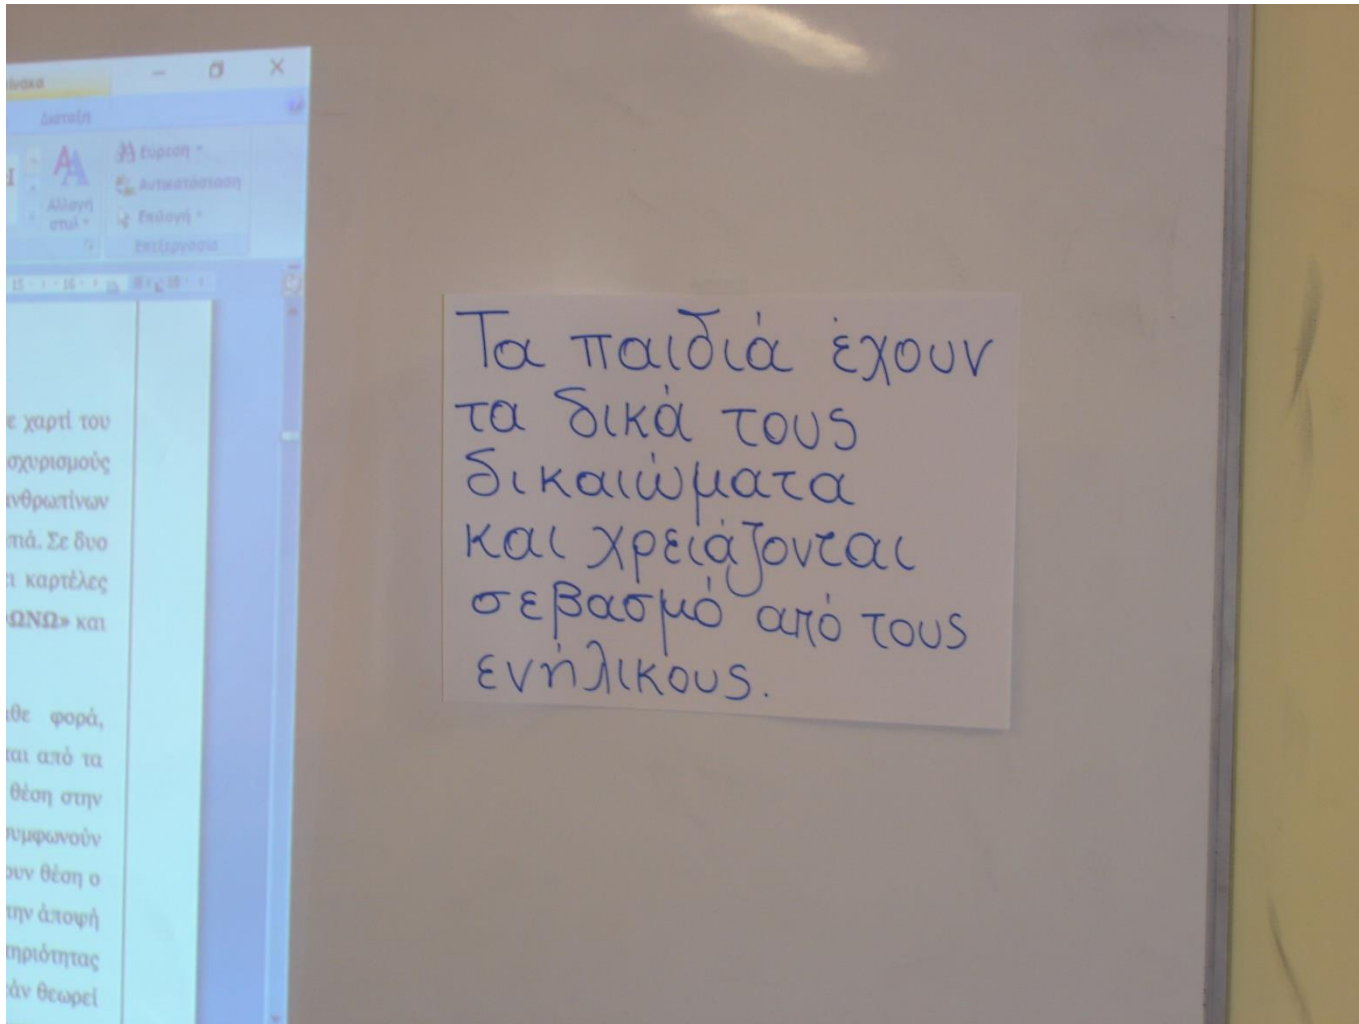 Διαταξη
Εύρεση
Αντικατάσταση
Αλλαγή
στυλ
Επιλογή
Επεξεργασία
15 16 18
χαρτί του
ισχυρισμούς
ανθρωπίνων
Σε δυο
καρτέλες
και
φορά,
από τα
θέση στην
συμφωνούν
θέση ο
την άποψή
θεωρεί
Τα παιδιά έχουν
τα δικά τους
δικαιώματα
και χρειάζονται
σεβασμό από τους
ενήλικους.